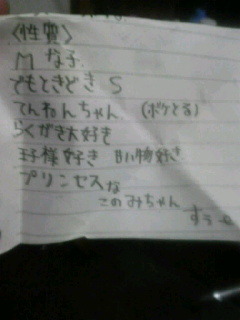 〈性質〉
Mな子
でもときどき S
てんねんちゃん (ボケとる)
らくがき大好き
王子様好き 甘い物好き
プリンセスな
このみちゃん